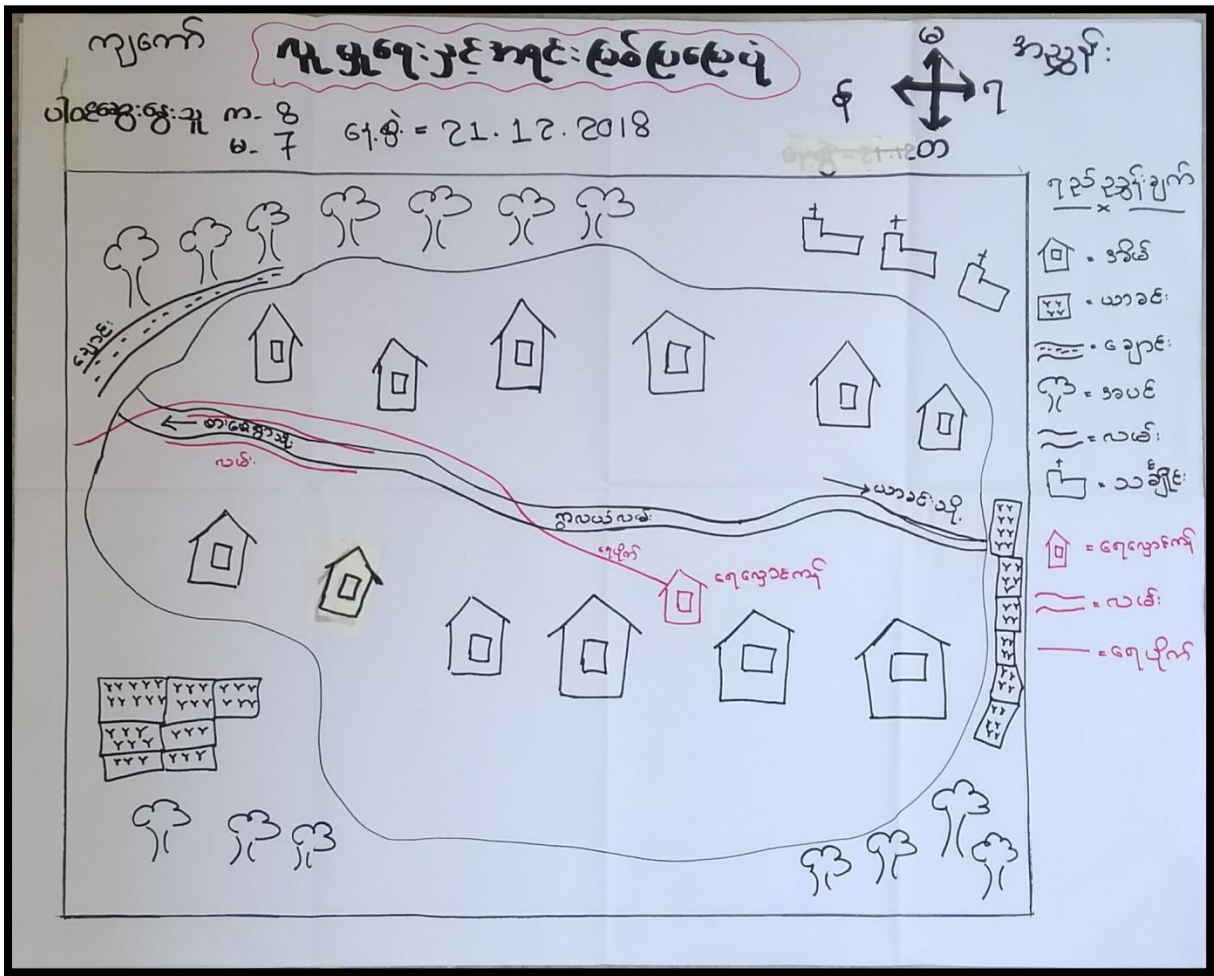 ကျကော်
လူမှုရေးနှင့်အရင်းမြစ်ပြမြေပုံ
အညွှန်း
ပါဝင်ဆွေးနွေးသူ က- 8
မ- 7
နေ့စွဲ = 21.12.2018
မ
န
ရ
တ
ရည်ညွှန်းချက်
= အိမ်
= ယာခင်း
= ချောင်း
= အပင်
= လမ်း
= သင်္ချိုင်း
= ရေလှောင်ကန်
= လမ်း
= ရေပိုက်
ချောင်း
လမ်း
ရွာလယ်လမ်း
ယာခင်းသို့
ရေပိုက်
ရေလှောင်ကန်